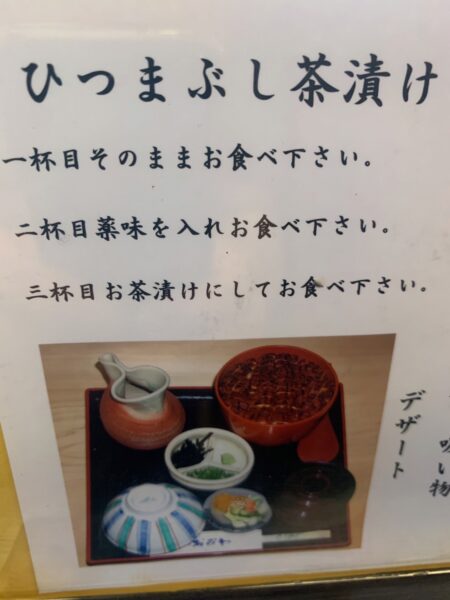 ひつまぶし茶漬け
一杯目そのままお食べ下さい。
二杯目薬味を入れお食べ下さい。
三杯目お茶漬けにしてお食べ下さい。
デザート
吸い物